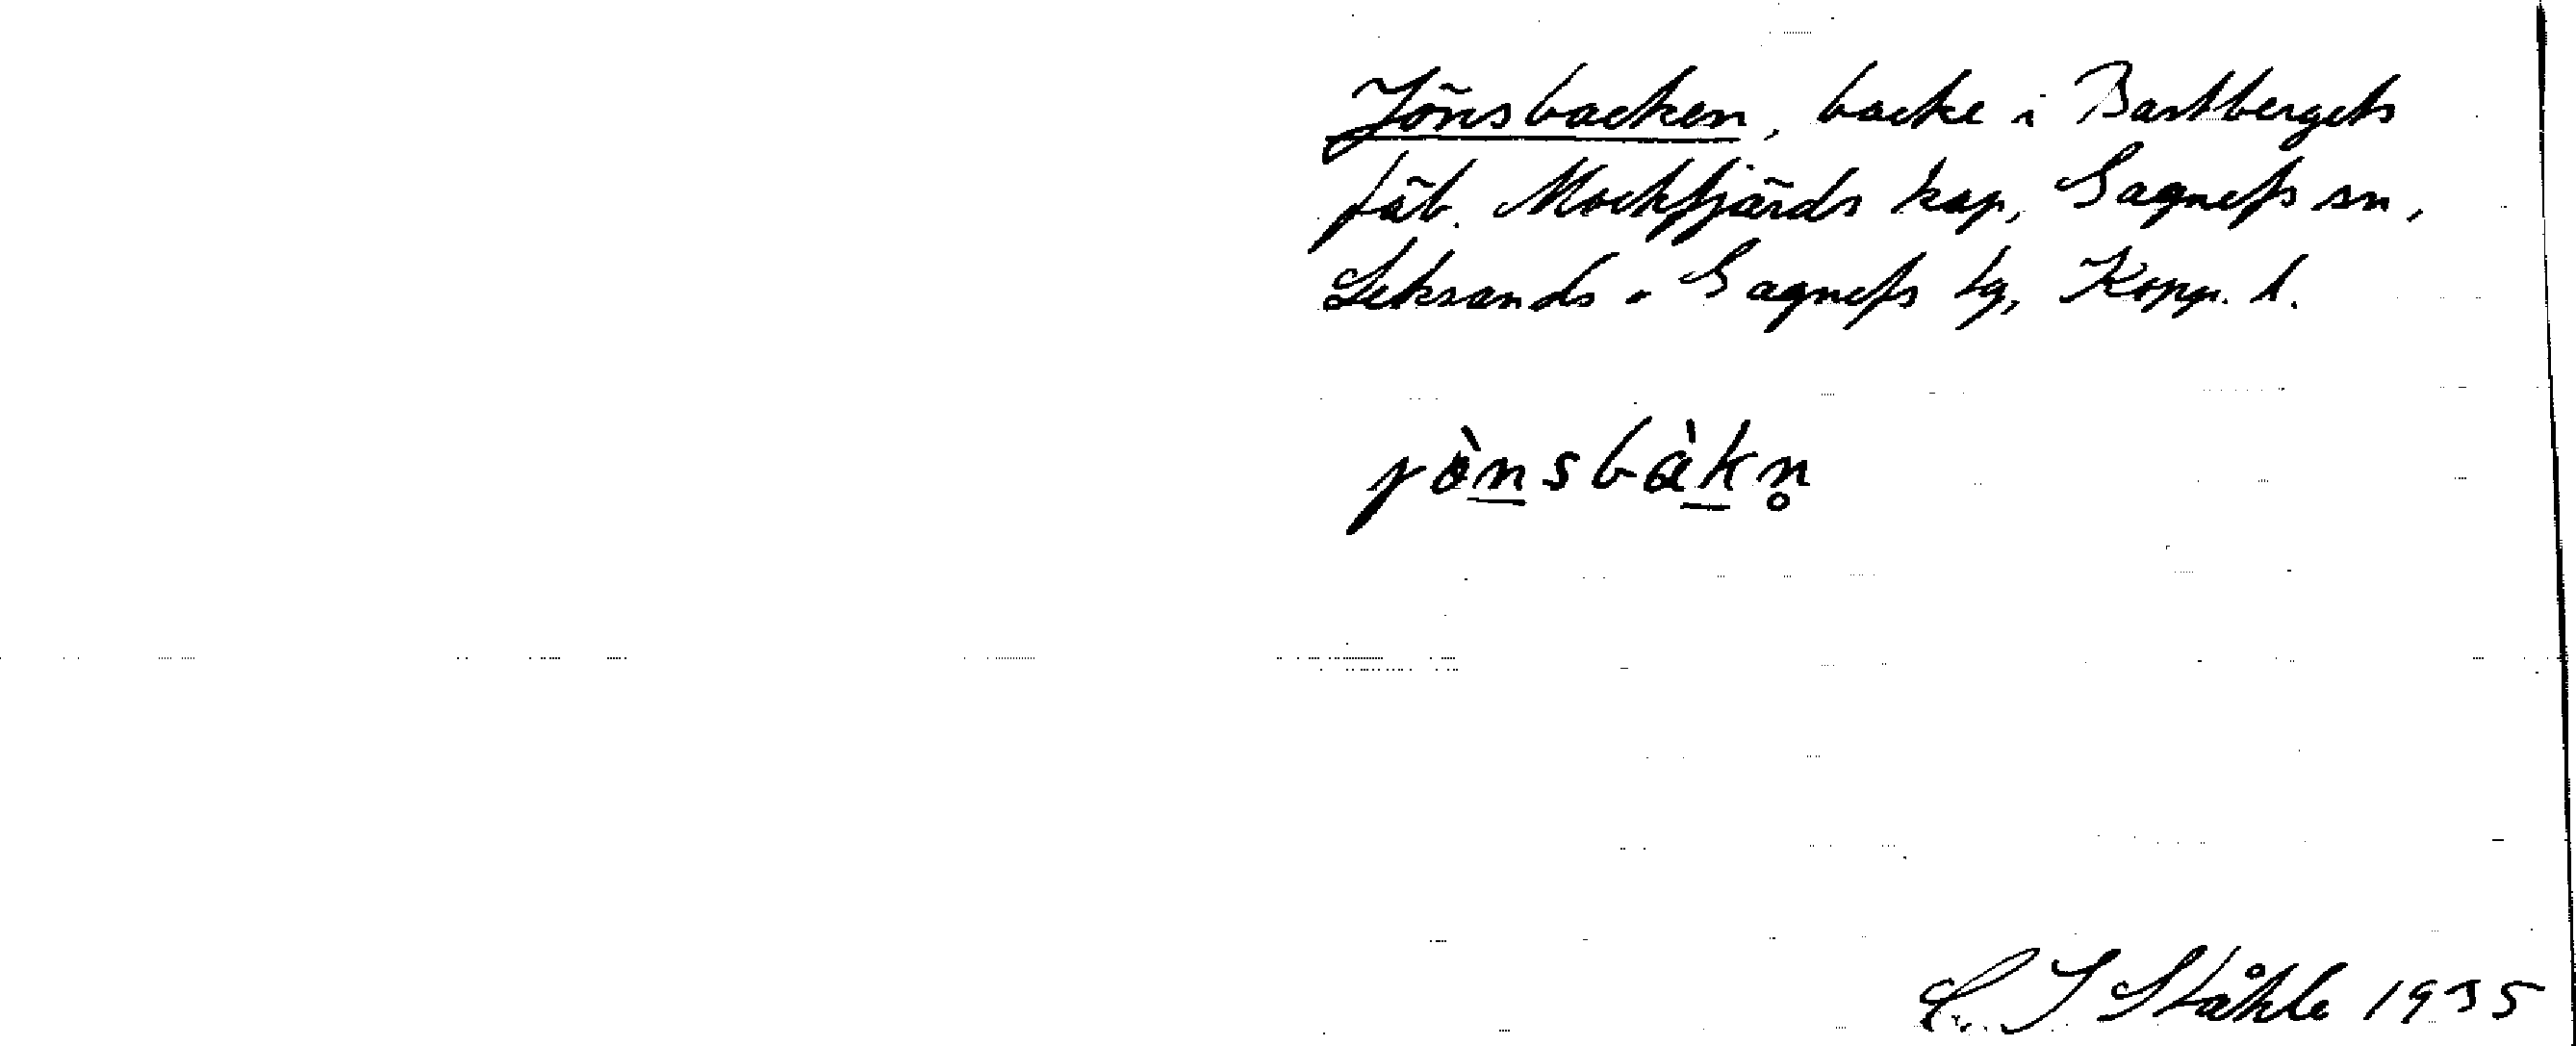 Jönsbacken, backe i Bastbergets
fäb. Mockfjärds kap, Gagnefs sn,
Leksands o Gagnefs tg, Kopp. l.
jònsbàkn̥
C. I Ståhle 1935